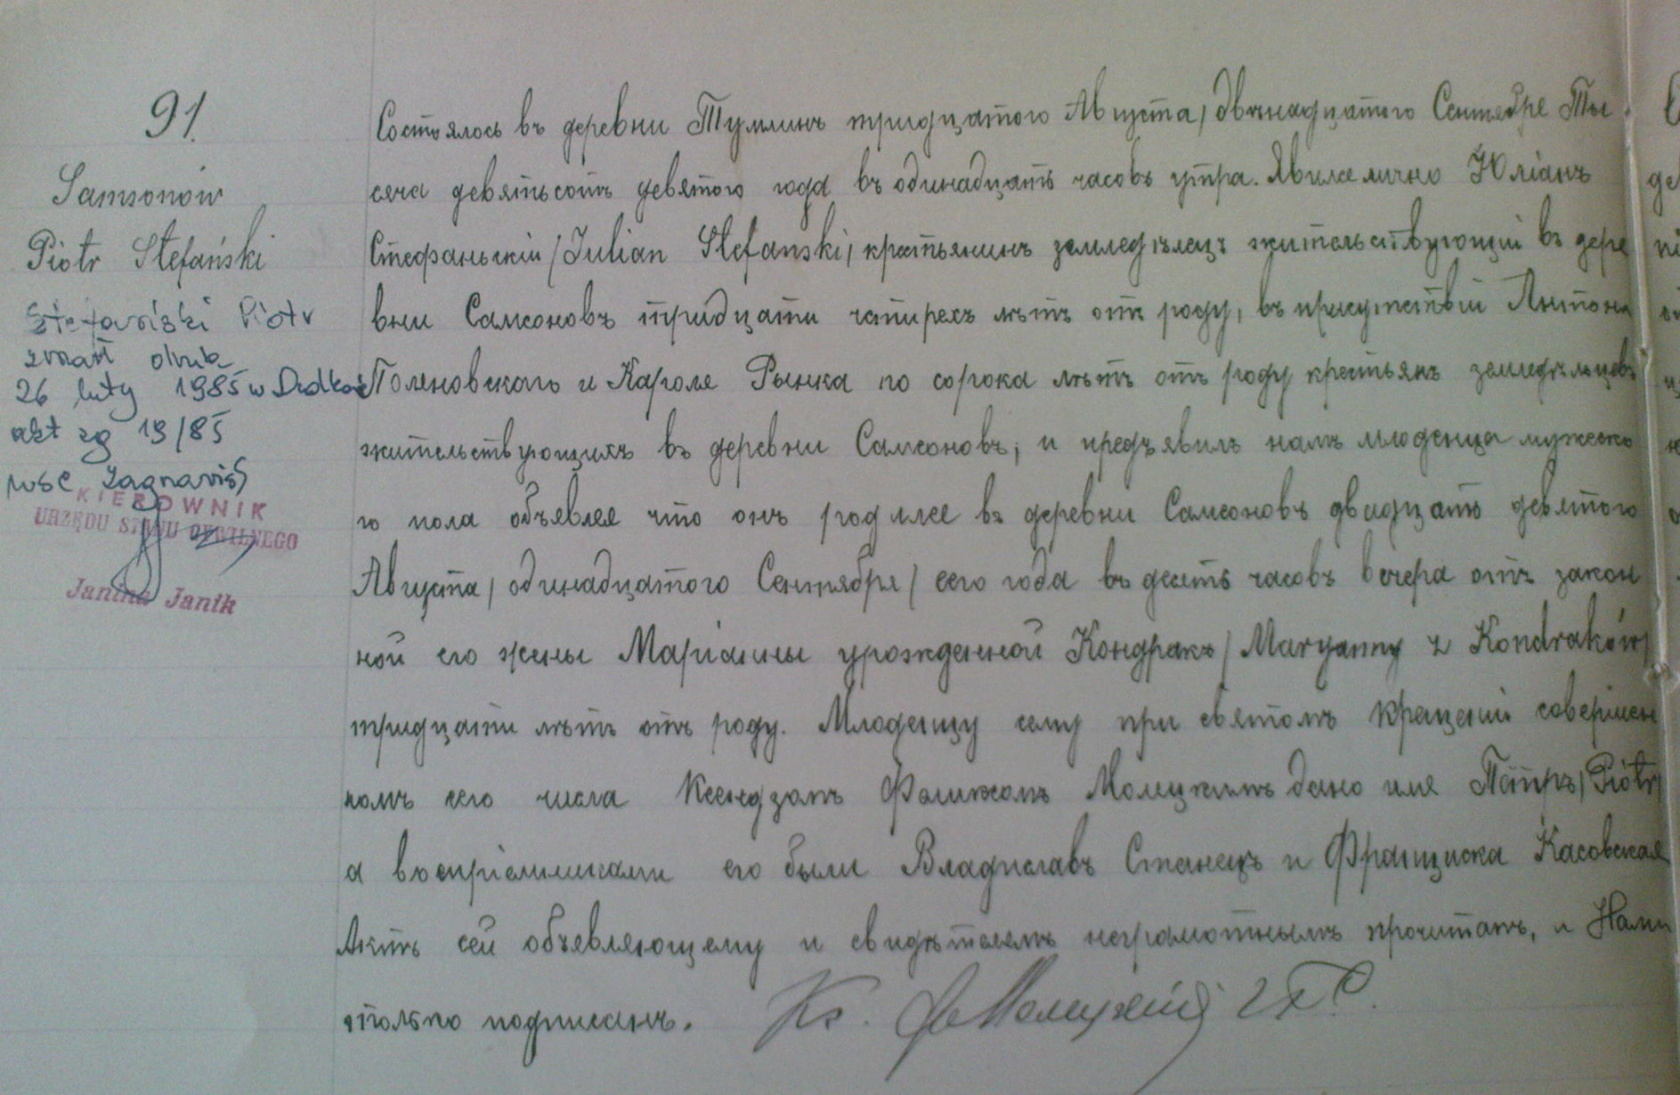 91.
Samsonów
Piotr Stefański
Stefański Piotr
zmarł dnia
26 luty 1985 w
akt zg 19/85
USC Zagnańsk
KIEROWNIK
URZĘDU STANU CYWILNEGO
Janina Janik
Состоялось въ деревни Тумлинъ тридцатого Августа /двѣнадцатого Сентебре Ты
сеча девятьсотъ девятого года въ одинадцать часовъ утра. Явилсе лично Юліанъ
Стефаньскій /Julian Stefanski/ крестьянинъ земледѣлецъ жительствующій въ дере
вни Самсоновъ тридцати чтирехъ лѣтъ отъ роду, въ присутствіи Антона
и Кароле Рынка по сорока лѣтъ отъ роду крестьянъ земледѣльцевъ
жительствующихъ въ деревни Самсоновъ; и предъявилъ намъ младенца мужеско
го пола объявляя что онъ родился въ деревни Самсоновъ двадцать девятого
Августа /одинадцатого Сентября/ сего года въ десять часовъ вечера отъ закон
ной его жены Маріанны урожденной Кондракъ /Maryanny z Kondraków/
тридцати лѣтъ отъ роду. Младенцу сему при святомъ крещеніи совершен
номъ сего числа Ксендзомъ Феликсомъ дано имя Петръ /Piotr/
а воспріемниками его были Владиславъ Станекъ и Францишка Касовская
Актъ сей объевляющему и свидѣтелемъ неграмотнымъ прочитанъ, и Нами
только подписанъ. Кс. Ф